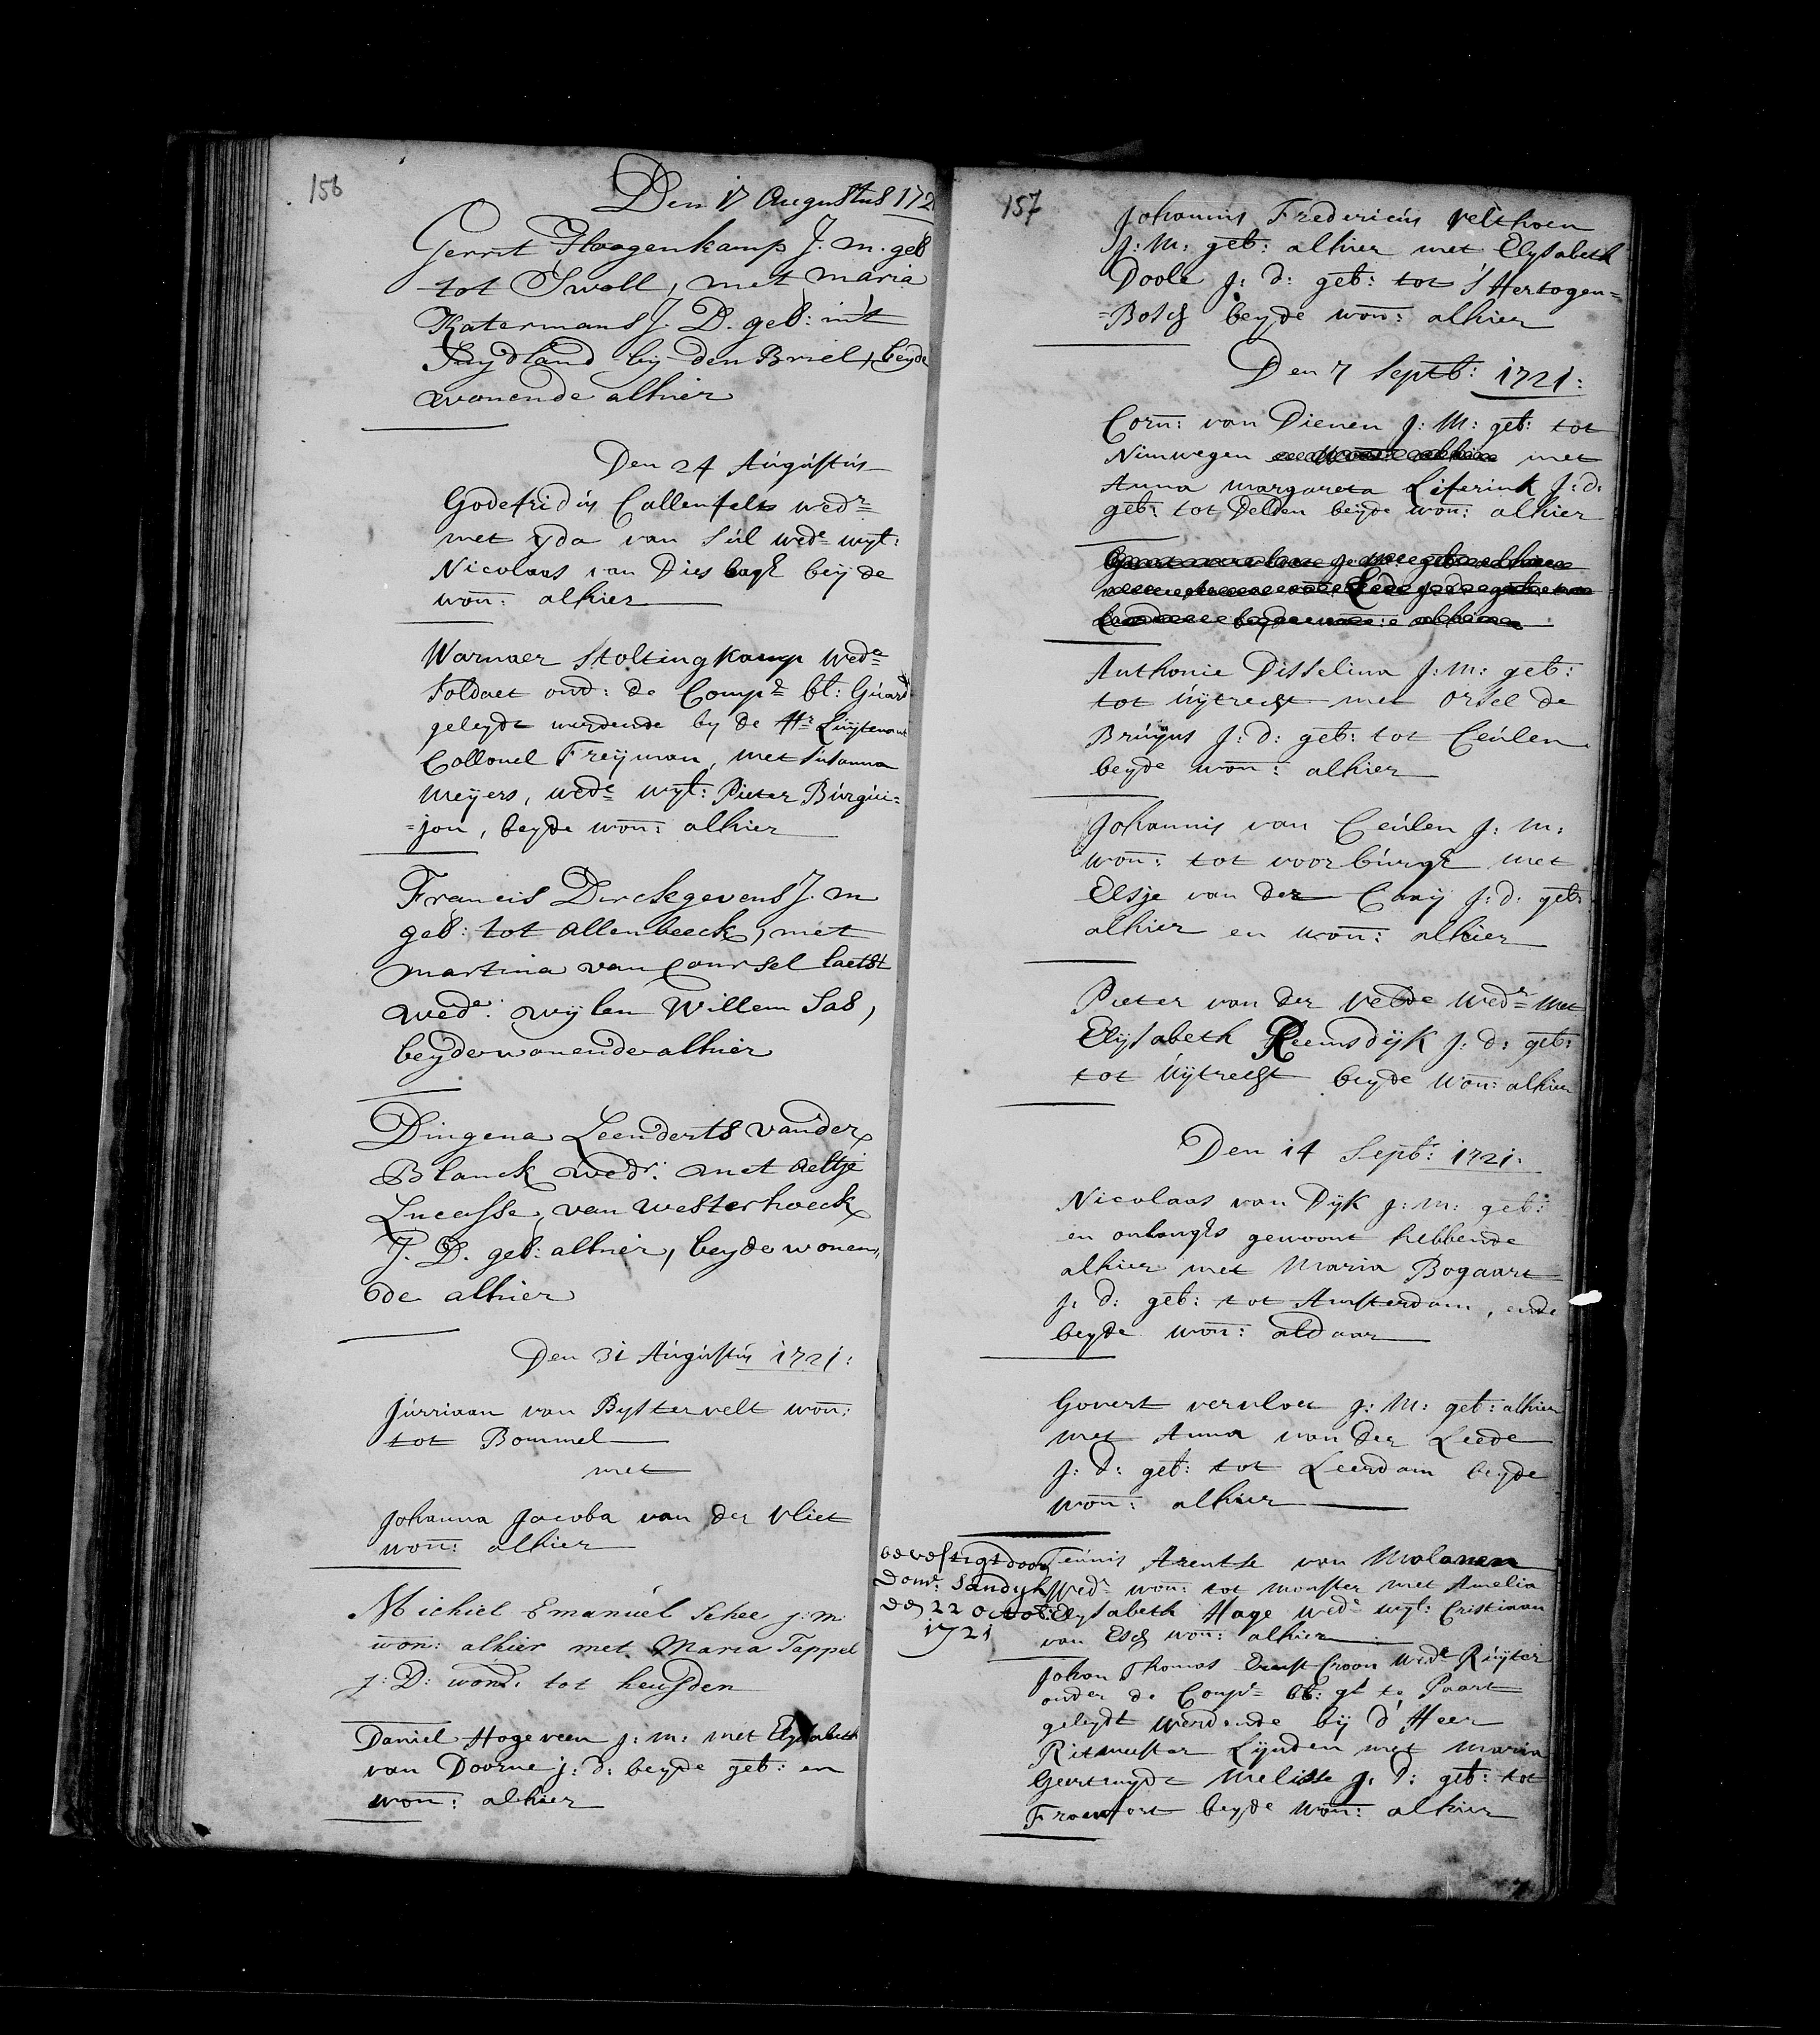 156
Den 17 Augustus 172
Gerrit Haagenkamp J. m. geb
tot Swoll, met maria
Katermans J. D. geb: int
Suydland by den Briel, beyde
wonende alhier
Den 24 Augustus
Godefridus Callenfels wedr
met yda van Sul wede wyl:
Nicolaas van Dies bagh beyde
won: alhier
Warnaer Stoltingkamp wedr
Soldaet ond: de Compe bl: Guard
geleydt werdende by de Hr Luytenant
Collonel Freyman, met Susanna
Meyers, wede wyl: Pieter Burgui=
=jon, beyde won: alhier
Francis Dirckgevens J. m
geb: tot Allenbeeck, met
martina van Coursel laetst
wede: wylen Willem Sas,
beyde wonende alhier
Dingena Leenderts vander
Blanck wedr: met Aeltje
Lucasse, van westerhoeck
J. D. geb: alhier, beyde wonen,,
de alhier
Den 31 Augustus 1721:
Jurriaan van Bystervelt won:
tot Bommel
met
Johanna Jacoba van der Vliet
won: alhier
Michiel Emanuel Schee j: m:
won: alhier met Maria Tappel
j: D: wond: tot heusden
Daniel Hogeveen j: m: met Elysabeth
van Doorne j: d: beyde geb: en
won: alhier
157
Johannis Fredericus Velthoen
J: M: geb: alhier met Elysabeth
Doole J: d: geb: tot S'Hertogen=
=Bosch beyde won: alhier
Den 7 Septb: 1721:
Corn: van Dienen J: M: geb: tot
Nimwegen met
Anna margareta Liferink J: d:
geb: tot Delden beyde won: alhier
Anthonie Disselina J: M: geb:
tot Uytrecht met Orsel de
Bruyns J: d: geb: tot Ceulen
beyde won: alhier
Johannis van Ceulen J: m:
won: tot voorburgh met
Elsje van der Caay J: d: geb:
alhier en won: alhier
Pieter van der Velde wedr met
Elysabeth Reemsdyk J: d: geb:
tot Uytrecht beyde won: alhier
Den 14 Septb: 1721:
Nicolaas van Dyk J: m: geb:
en onlanghs gewoont hebbende
alhier met Maria Bogaart
J: d: geb: tot Amsterdam, ende
beyde won: aldaar
Govert vervloet J: M: geb: alhier
met Anna van der Leede
J: d: geb: tot Leerdam beyde
won: alhier
bevestigt door
Domr: Sandyk
den 22 Octob:
1721
Teunis Arentse van Molanen
Wedr won: tot monster met Amelia
Elysabeth Hage wede wyl: Cristiaan
van Esch won: alhier
Johan Thomas Ernst Croon Wedr Ruyter
onder de Compe bl: gd te Paart
geleydt werdende by d'Heer
Ritmeester Lynden met Maria
Geertruydt Melisse J: d: geb: tot
Francfort beyde won: alhier